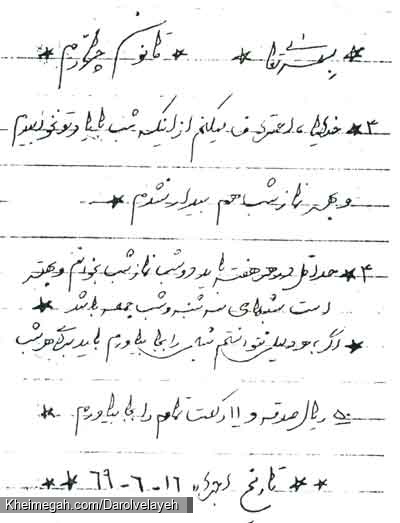 * بسمه تعالی * قانون چهارم *
۳* خدایا، اعتراف میکنم از اینکه شب با یاد تو نخوابیدم
و بهر نماز شب هم بیدار نشدم *
۴* حداقل در هر هفته باید دو شب نماز شب بخوانم و بهتر
است شبهای سه شنبه و شب جمعه باشد *
* اگر به دلیلی نتوانستم شبی را بجا بیاورم باید بجای هر شب
۵۰ ریال صدقه و ۱۱ رکعت تمام را بجا بیاورم *
** تاریخ اجراء ۱۶-۶-۶۹ **
Kheimegah.com/Darolvelayeh